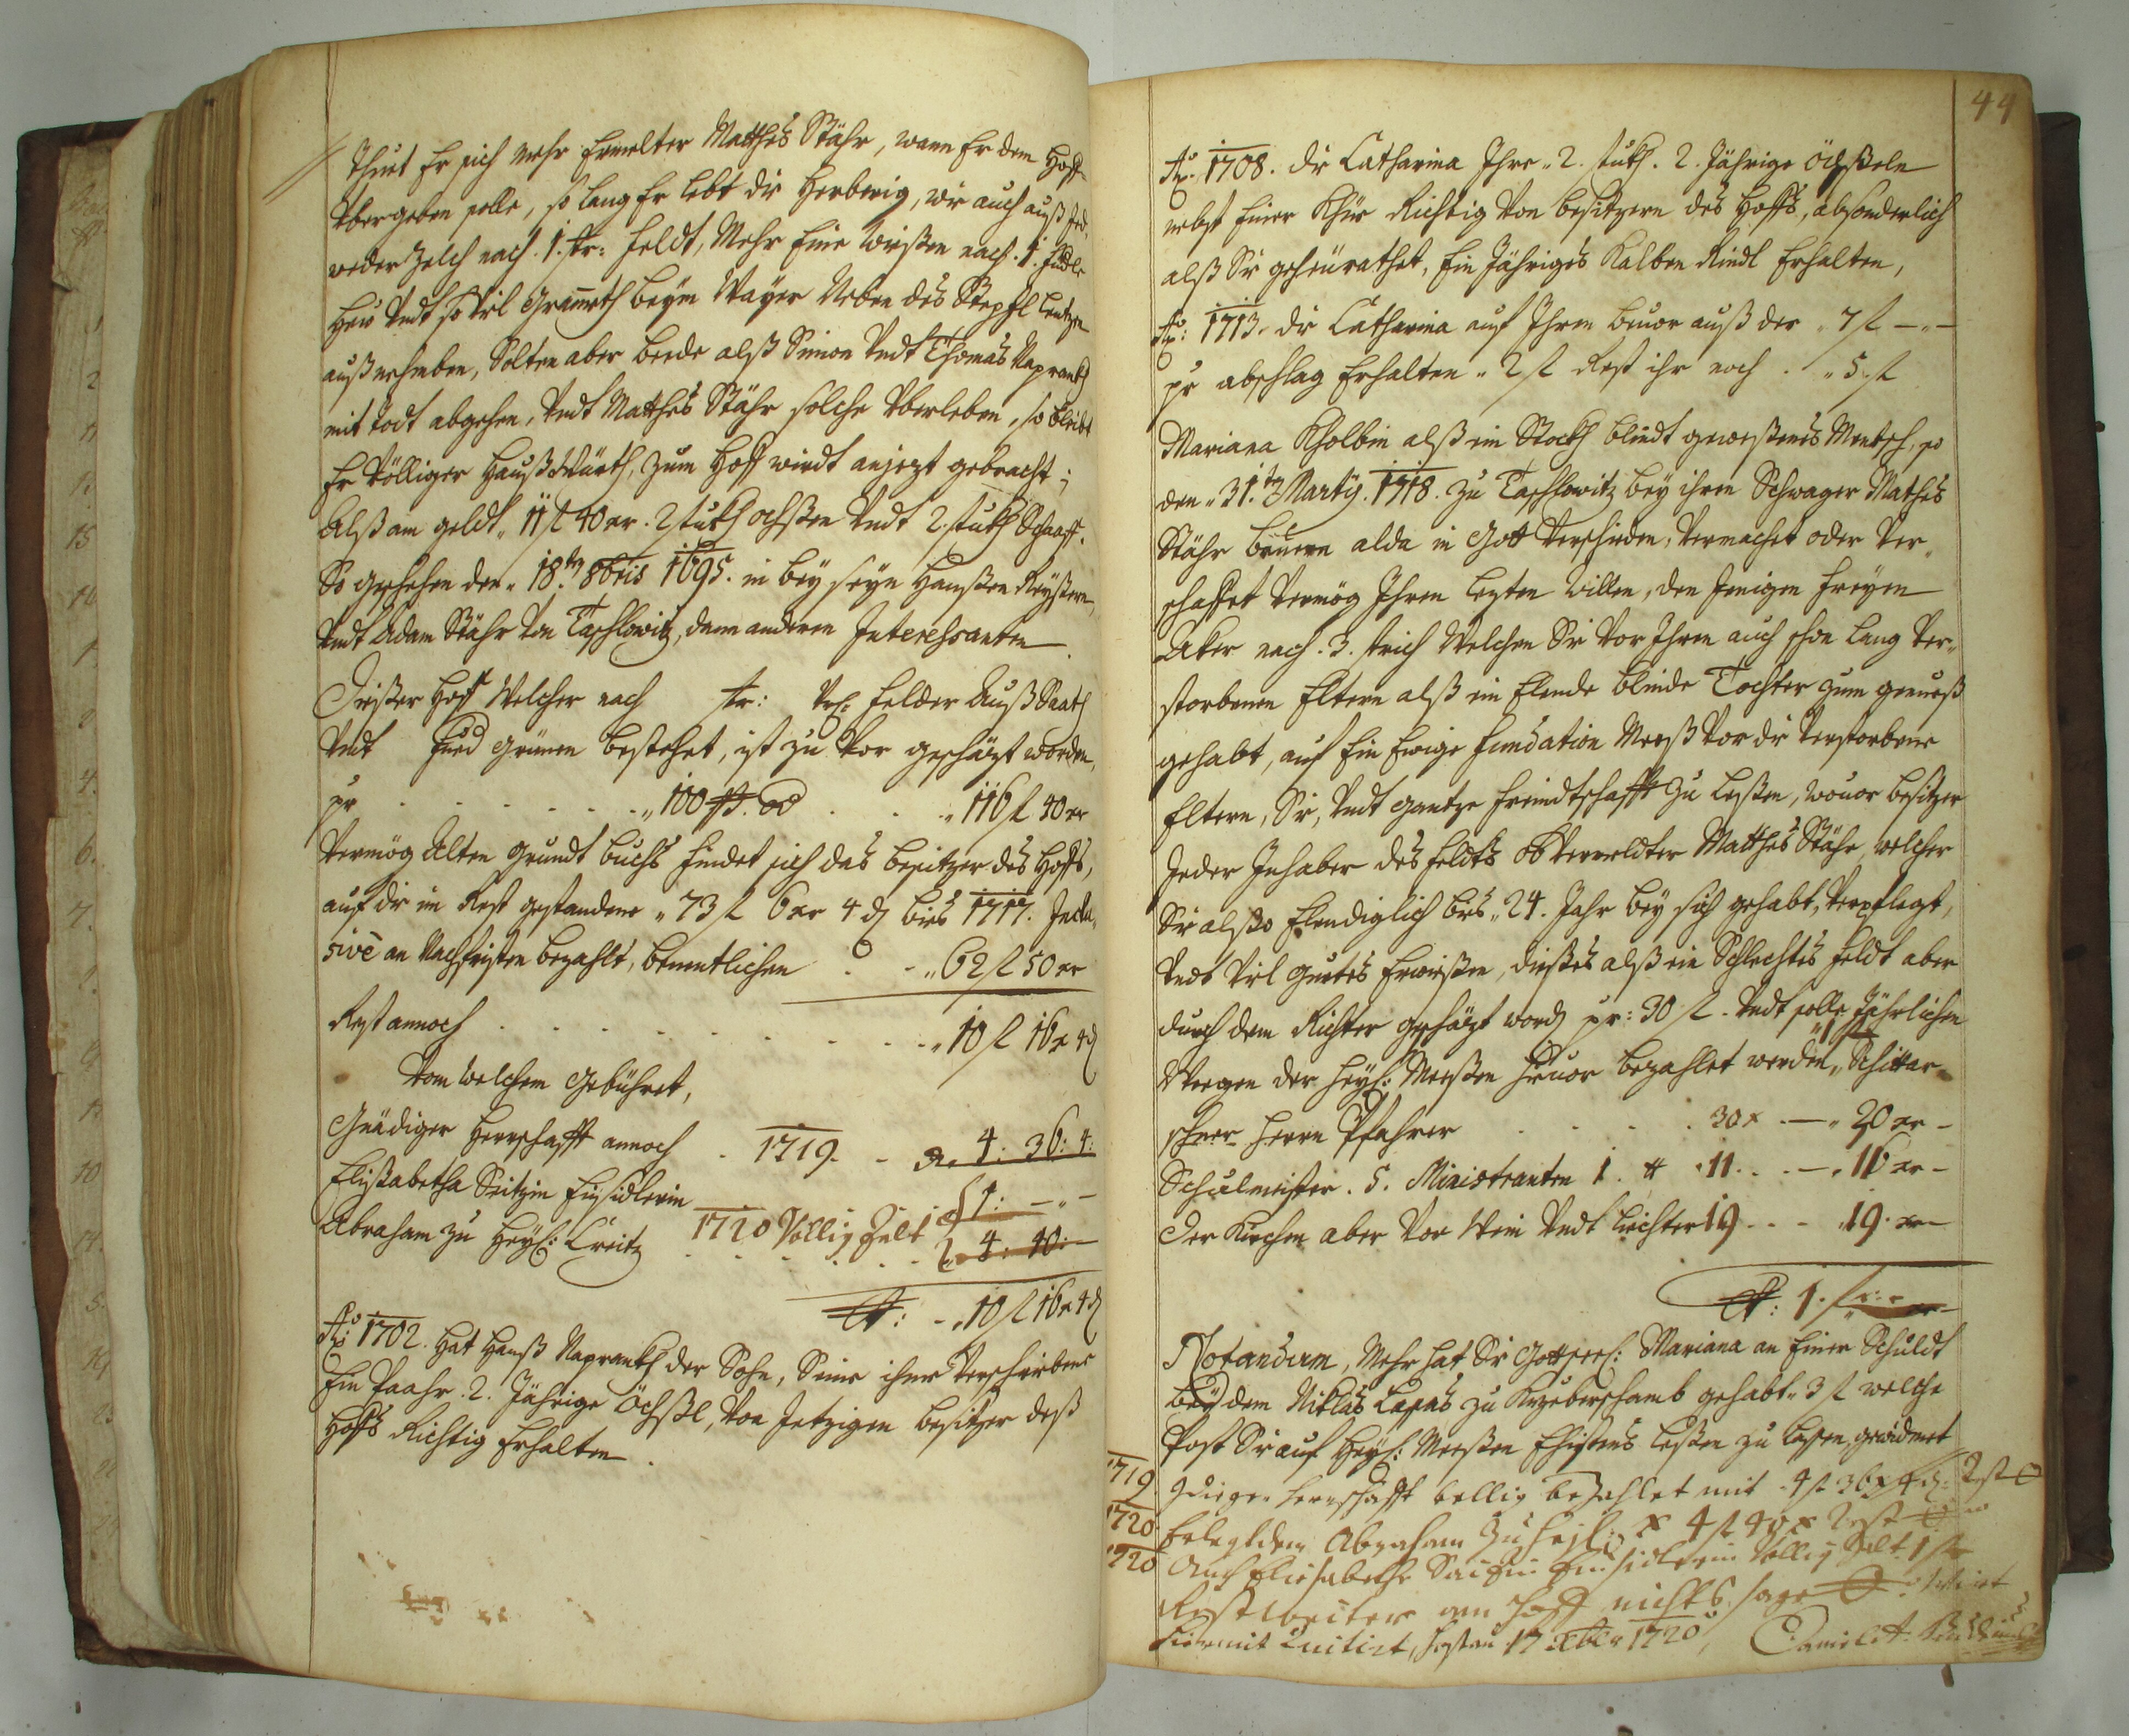 Thuet Er sich mehr Ermelter Matthes Stähr, wann Er dem Hoff
Vbergeben solle, so lang Er lebt die Herberig, wie auch auß Jed-
weder Zelch nach 1. str: Feldt, Mehr Eine Wießen nach 1. Fudl
Heü Vndt so Viel Grameth beÿm Waÿer Neben des Stepfl
außnehmben, Solten aber beede alß Simon Vndt Thomas Naprankh
mit todt abgehen, Vndt Matthes Stähr solche Vberleben, so bleibt
Er Völliger HaußWürth, zum Hoff wirdt anjezt gebracht;
Alß am geldt „ 11 f 40 xr. 2 stukh ochßen Vndt 2. stukh Schaaff.
So geschehen den „ 18ten 8bris 1695. in beÿ seÿn Hanßen
Vndt Adam Stähr Von Taschlowitz, dann anderen Interessenten
Dießer Hoff Welcher nach str: Felder AußSaath
Vndt Fued Grünen bestehet, ist zu Vor geschäzt worden,
pr . . . . . „ 100 ßt. . . . „ 116 f 40 xr
Vermög Alten Grundt buchs findet sich das besitzer des Hoffs,
auf die im Rest gestandene „ 73 f 6 xr 4 d bies 1717. Inclu-
sivè an Nachfristen bezahlt, benentlichen . - „ 62 f 50 xr
Rest annoch . . . . . . . . - „ 10 f 16 x 4 d
Von Welchem Gebühret,
Gnädiger Herrschafft annoch . 1719. - 4: 36: 4:
Elisabetha Seitzin Einsidlerin 1: — „ —
Abraham zu Heÿl: Creitz 1720 Völlig Zalt 4: 40: —
- „ 10 f 16 x 4 d
Ao: 1702. Hat Hanß Naprankh der Sohn, Seine ihme Verschribene
Ein Paahr 2. Jährige Öchßl, Von Jetzigen besitzer deß
Hoffs Richtig Erhalten.
44
Ao. 1708. die Catharina Ihre „ 2. stukh. 2. Jährige Öchßeln
nebst Einer Khüe Richtig Von besitzern des Hoffs, absonderlich
alß Sie geheürathet, Ein Jähriges Kalben Rindl Erhalten,
Ao: 1713. die Catharina auf Ihren beuor auß der „ 7 f — „ —
pr abschlag Erhalten „ 2 f Rest ihr noch . „ 5. f
Mariana Kholbin alß ein Stockh blindt geweßenes Mentsch, so
den „ 31.ten Martij. 1718. zu Taschlowitz beÿ ihren Schwager Mathes
Stähr bauern alda in Gott Verschieden, Vermachet oder Ver-
schaffet Vermög Ihren Lezten Willen, den Jenigen freÿen
Aker nach 3. strich Welchen Sie Vor Ihren auch schon lang Ver-
storbenen Eltern alß ein Elende blinde Tochter zum genueß
gehabt, auf Ein Ewige fundation Meeß Vor die Verstorbene
Eltern, Sie, Vndt gantze freindtschafft zu Leßen, wouor besitzer
Jeder Inhaber des feldts Vermeldter Matthes Stähr, welcher
Sie alßo Elendiglich bies „ 24. Jahr beÿ sich gehabt, Verpflegt,
Vndt Viel guetes Erwießen, dießes alß ein Schlechtes feldt aber
durch den Richter geschäzt word pr: 30 f. Vndt solle Jährlichen
Wegen der Heÿl: Meeßen hieuor bezahlet werden,
Herrn Pfahrer . . . . 30 x — „ 20 xr —
Schulmeister. 5. Ministranten 1. # . 11. . . — „ 16 xr —
Der Kirchen aber Vor Wein Vndt Liechter 19 . - - „ 19. xr —
1. f
Notandum, Mehr hat Sie Gottseel: Mariana an Einer Schuldt
beÿ dem Niklas Lasas zu gehabt „ 3 f welche
Post Sie auf Heÿl: Meeßen Leßen zu Laßen, gewidmet
1719 Herrschafft vellig bezahlet mit 4 f 36 x 4 d: Rst 0
1720. Erlegt dem Abraham Zu Heÿl: X 4 f 40 x Rest 0
1720 Auch Elisabethe Saizin Einsidlerin Völlig Zalt 1 f
Rest Weiters am Hoff nichts sage 0 Wirt
Hiermit Quitirt, 17 Xber 1720